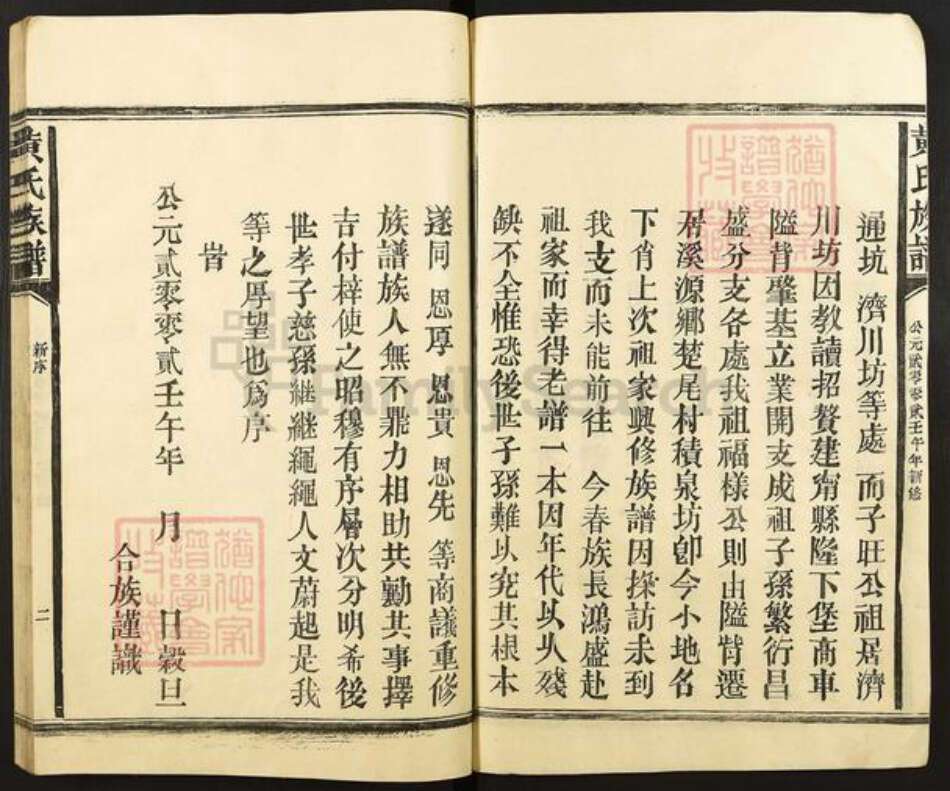 黃氏族譜
公元貳零零貳壬午年新修
通坑 濟川坊等處 而子旺公祖居濟
川坊因教讀招贅建甯縣隆下堡商車
隘背肇基立業開支成祖子孫繁衍昌
盛分支各處我祖福樣公則由隘背遷
居溪源鄉楚尾村積泉坊卽今小地名
下肖上次祖家興修族譜因探訪未到
我支而未能前往 今春族長鴻盛赴
祖家而幸得老譜一本因年代以久殘
缺不全惟恐後世子孫難以究其根本
遂同 恩厚 恩貴 恩先 等商議重修
族譜族人無不鼎力相助共勷其事擇
吉付梓使之昭穆有序層次分明希後
世孝子慈孫繼繼繩繩人文蔚起是我
等之厚望也爲序
旹
公元貳零零貳壬午年 月 日穀旦
合族謹識
黃氏族譜
新序
二
FamilySearch